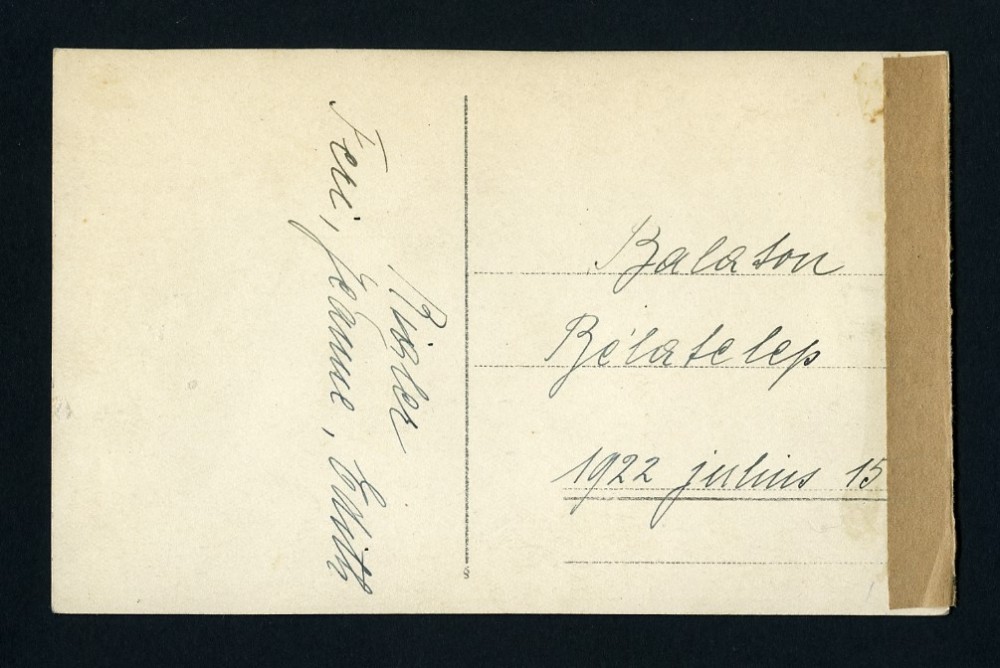 Feri, Jeanne, Edith
Balaton
Bélatelep
1922 julius 15